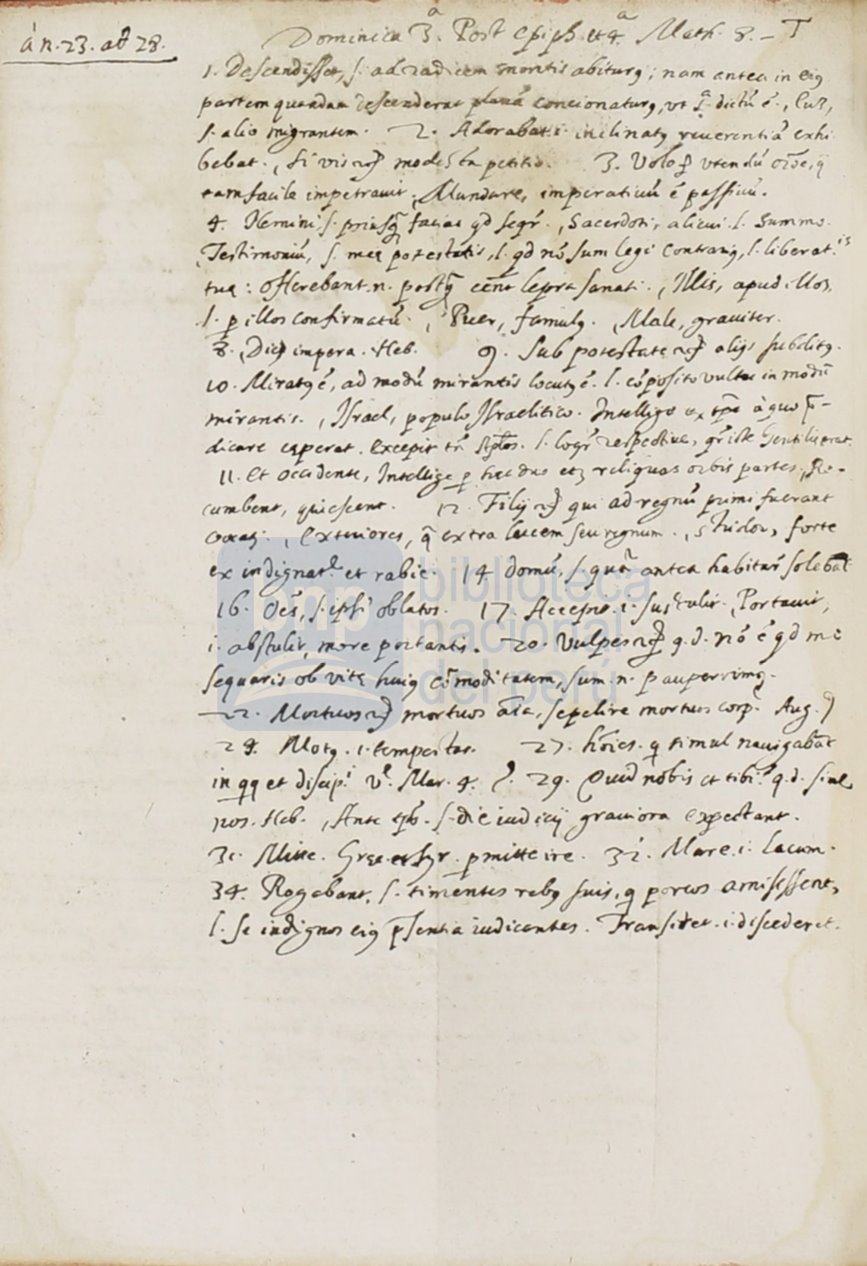 á n. 23. ad 28.
Dominica 3.ª Post Epiph. et 4.ª Math. 8. – T
1. Descendisset, s. ad radicem montis abiturꝰ; nam antea in eiꝰ
partem quandam descenderat planā concionaturꝰ, vt ī dictū ē.
s. alio migrantem. 2. Adorabat. i. inclinatꝰ reuerentiā exhi
bebat. , Si vis modesta petitio. 3. Volo vtendū
tam facile impetrauit. , Mundare, imperatiuū ē passiuū.
4. Nemini s. priusq̄ facias qd seqr. , Sacerdoti, alicui l. summo.
, Testimoniū, s. meę potestatis, l. qd nō sum legi contrariꝰ, l. liberat.is
tuę: offerebant. n. postq̄ lepra sanati. , Illis, apud illos,
l. p illos confirmatū. , Puer, famulꝰ. , Male, grauiter.
8. , Dic impera. Heb. 9. Sub potestate alijs subditꝰ.
10. Miratꝰ ē, ad modū mirantis locutꝰ ē. l. cōposito vultu in modū
mirantis. , Israel, populo Israelitico. Intellige ex tp̄e à quo p̄-
dicare cęperat. Excepit tn̄ Ap̄los. l. loqr̄ respectiue, Gentilis erat.
11. Et Occidente, Intellige p hęc duo etꝫ reliquas orbis partes, Re-
cumbent, quiescent. 12. Filij qui ad regnū primi fuerant
vocati. , Exteriores, q̄ extra lucem seu regnum. , Stridor, forte
ex indignat.e et rabie. 14 domū, s. quā antea habitare solebat
16. Oēs, s. ipsi oblatos. 17. Accepit. i. sustulit. , Portauit,
i. abstulit, more portantis. 20. Vulpes q. d. nō ē qd me
sequaris ob vitę huiꝰ cōmoditatem, sum. n. pauperrimꝰ.
22. Mortuos mortuos aīa, sepelire mortuos corp.e Aug.
24. Motꝰ. i. tempestas. 27. hōies. q simul nauigabāt
in et discip.i v.l Mar. 4. 29. Quid nobis et tibi? q. d. sine
nos. Heb. , Ante s. diē iudicij grauiora expectant.
31. Mitte. Gręc. et Syr. pmitte ire. 32. Mare. i. lacum.
34. Rogabant, s. timentes rebꝰ suis, q porcos amisissent,
l. se indignos eiꝰ p̄sentia iudicantes. Transiret. i. discederet.
biblioteca
nacional
del perú